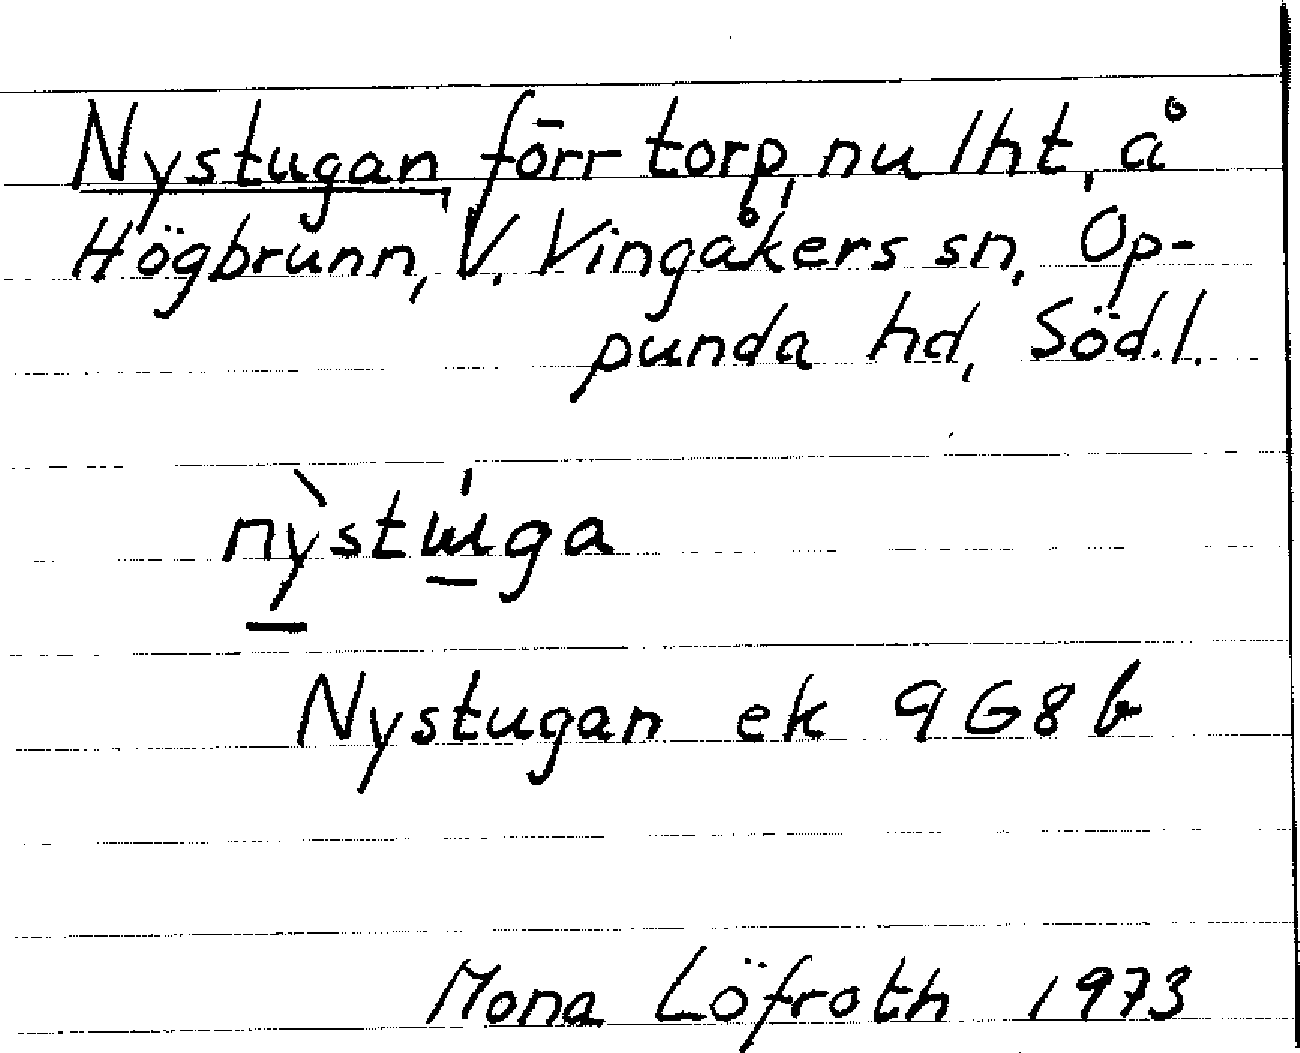 Nystugan, förr torp, nu lht, å
Högbrunn, V. Vingåkers sn, Op-
punda hd, Söd.l.
Nystugan ek 9G8b
Mona Löfroth 1973